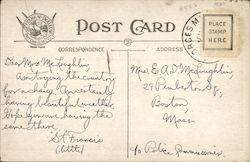 POST CARD
CORRESPONDENCE
ADDRESS
PLACE
STAMP
HERE
Dear Mrs McLaughlin,
Am trying the country
for a change. Am certainly
having beautiful weather.
Hope you are having the
same there.
St. Francis
Mrs. E. A. McLaughlin,
29 Pemberton Sq.,
Boston
Mass
c/o Police Commissioner